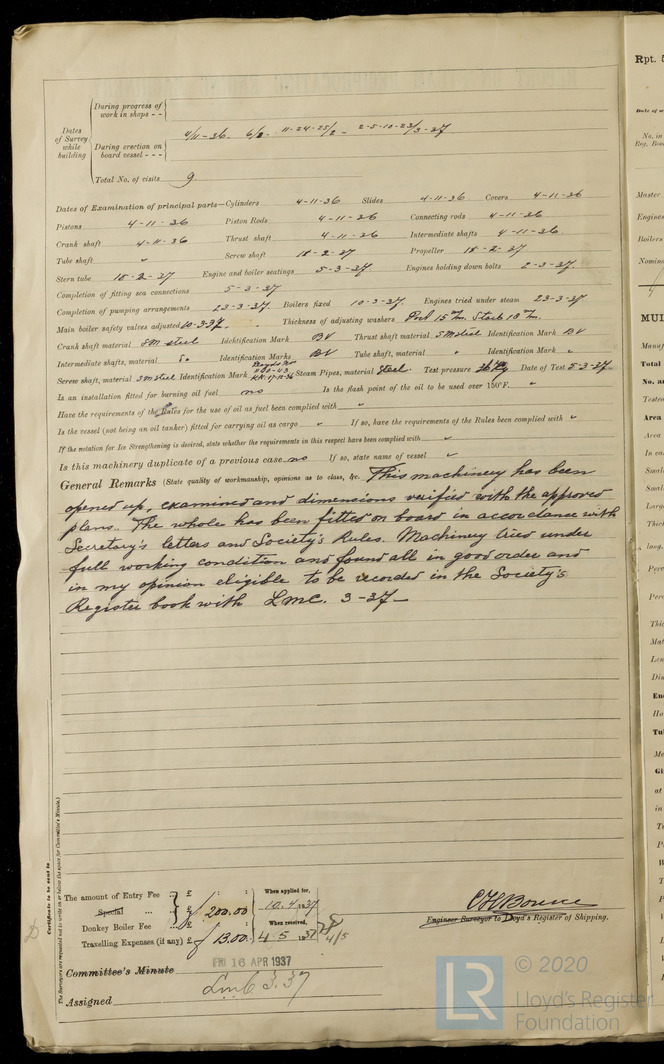 Dates of Survey while building
During progress of work in shops - -
During erection on board vessel - - -
4/11-36. 6/2. 11-24-25/2- 2-5-10-23/3-37
Total No. of visits 9.
Dates of Examination of principal parts—Cylinders 4-11-36 Slides 4-11-36 Covers 4-11-36
Pistons 4-11-36 Piston Rods 4-11-36 Connecting rods 4-11-36
Crank shaft 4-11-36 Thrust shaft 4-11-36 Intermediate shafts 4-11-36
Tube shaft " Screw shaft 18-2-37 Propeller 18-2-37
Stern tube 18-2-37 Engine and boiler seatings 5-3-37 Engines holding down bolts 2-3-37.
Completion of fitting sea connections 5-3-37
Completion of pumping arrangements 23-3-37. Boilers fixed 10-3-37. Engines tried under steam 23-3-37
Main boiler safety valves adjusted 10-3-37. Thickness of adjusting washers Port 15 Starb 18
Crank shaft material SM steel Identification Mark BV Thrust shaft material SM steel Identification Mark BV
Intermediate shafts, material Identification Marks BV Tube shaft, material " Identification Mark "
Screw shaft, material SM steel Identification Mark Lloyds No K.K. 17-11-36 Steam Pipes, material Steel. Test pressure Date of Test 5-3-37.
Is an installation fitted for burning oil fuel no Is the flash point of the oil to be used over 150°F. "
Have the requirements of the Rules for the use of oil as fuel been complied with "
Is the vessel (not being an oil tanker) fitted for carrying oil as cargo " If so, have the requirements of the Rules been complied with "
If the notation for Ice Strengthening is desired, state whether the requirements in this respect have been complied with "
Is this machinery duplicate of a previous case no If so, state name of vessel "
General Remarks (State quality of workmanship, opinions as to class, &c. This machinery has been
opened up, examined and dimensions verified with the approved
plans. The whole has been fitted on board in accordance with
Secretary's letters and Society's Rules. Machinery tried under
full working condition and found all in good order and
in my opinion eligible to be recorded in the Society's
Register book with LMC. 3-37-
Certificate to be sent to
(The Surveyors are requested not to write on or below the space for Committee's Minute.)
The amount of Entry Fee ... £ : : When applied for,
Special ... ... £ 200.00 10.4.1937
Donkey Boiler Fee ... £ : : When received,
Travelling Expenses (if any) £ 13.00 4 5 1937 4/5
C H Bourne
Engineer Surveyor to Lloyd's Register of Shipping.
Committee's Minute FRI 16 APR 1937
Assigned LMC 3.37
Rpt. 5
Date of w
No. in
Reg. Boo
Master
Engines
Boilers
Nomina
MUL
Manuf
Total
No. an
Tested
Area
Area
In ca
Smal
Smal
Larg
Thick
long.
Perc
Perc
Thic
Mat
Len
Dia
En
Ho
Tu
Me
Gi
at
in
LR
© 2020
Lloyd's Register
Foundation